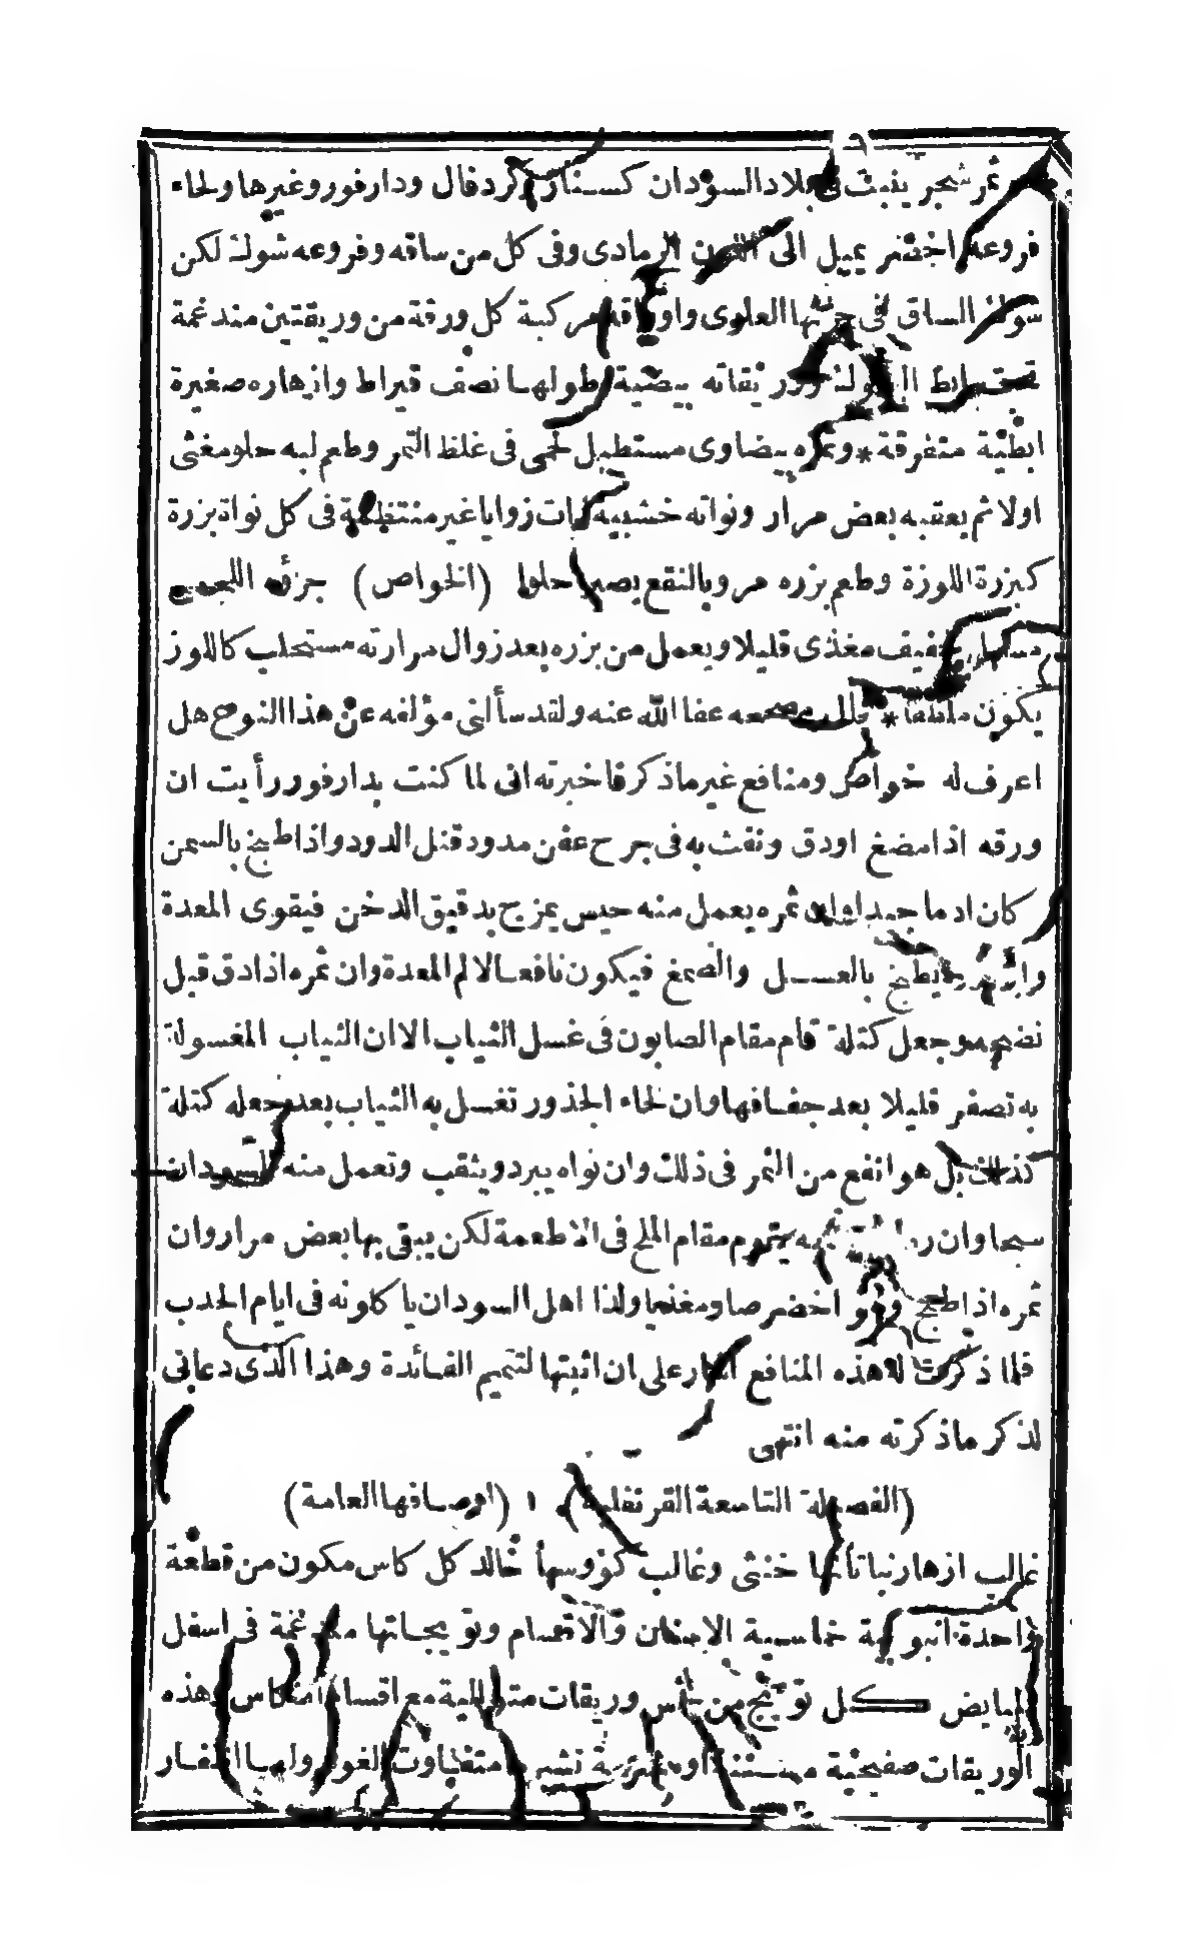 ثمر شجر ينبت فى بلاد السودان كسنار وكردفال ودارفور وغيرها ولحاء
فروعه اخضر يميل الى اللون الرمادى وفى كل من ساقه وفروعه شوك لكن
شوك الساق فى جزئها العلوى واوراقه مركبة كل ورقة من وريقتين مندغمة
تحت ابط الشوك ووريقاته بيضية طولها نصف قيراط وازهاره صغيرة
ابطية متفرقة * وثمره بيضاوى مستطيل لحمى فى غلظ التمر وطعم لبه حلو مغثى
اولا ثم يعقبه بعض مرار ونواته خشبية ذات زوايا غير منتظمة فى كل نواة بزرة
كبزرة اللوزة وطعم بزره مر وبالنقع يصير حلوا (الخواص) جزؤه اللحمى
مسهل خفيف مغذى قليلا ويعمل من بزره بعد زوال مرارته مستحلب كاللوز
يكون ملطفا * قال مصححه عفا الله عنه ولقد سألنى مؤلفه عن هذا النوع هل
اعرف له خواص ومنافع غير ما ذكر فاخبرته انى لما كنت بدارفور رأيت ان
ورقه اذا مضغ اودق ونفث به فى جرح عفن مدود قتل الدود واذا طبخ بالسمن
كان ادما جيدا وان ثمره يعمل منه حيس يمزج بدقيق الدخن فيقوى المعدة
يطبخ بالعسل والصمغ فيكون نافعا لالم المعدة وان ثمره اذا دق قبل
نضجه وجعل كتلة قام مقام الصابون فى غسل الثياب الا ان الثياب المغسولة
به تصفر قليلا بعد جفافها وان لحاء الجذور تغسل به الثياب بعد جعله كتلة
كذلك بل هو انفع من الثمر فى ذلك وان نواه يبرد ويثقب وتعمل منه السودان
سبحا وان يقوم مقام الملح فى الاطعمة لكن يبقى بها بعض مرار وان
ثمره اذا طبخ وهو اخضر صار مغذيا ولذا اهل السودان ياكلونه فى ايام الجدب
فلما ذكرت له هذه المنافع اشار على ان اثبتها لتتميم الفائدة وهذا الذى دعانى
لذكر ما ذكرته منه انتهى
(الفصيلة التاسعة القرنفلية) ١ (اوصافها العامة)
غالب ازهار نباتاتها خنثى وغالب كؤوسها خالد كل كاس مكون من قطعة
واحدة انبوبية خماسية الاسنان والاقسام وتويجاتها مندغمة فى اسفل
المبايض كل تويج من خمس وريقات متوالية مع اقسام الكاس وهذه
الوريقات صفيحية مسننة او متفاوت الغور ولها اظفار